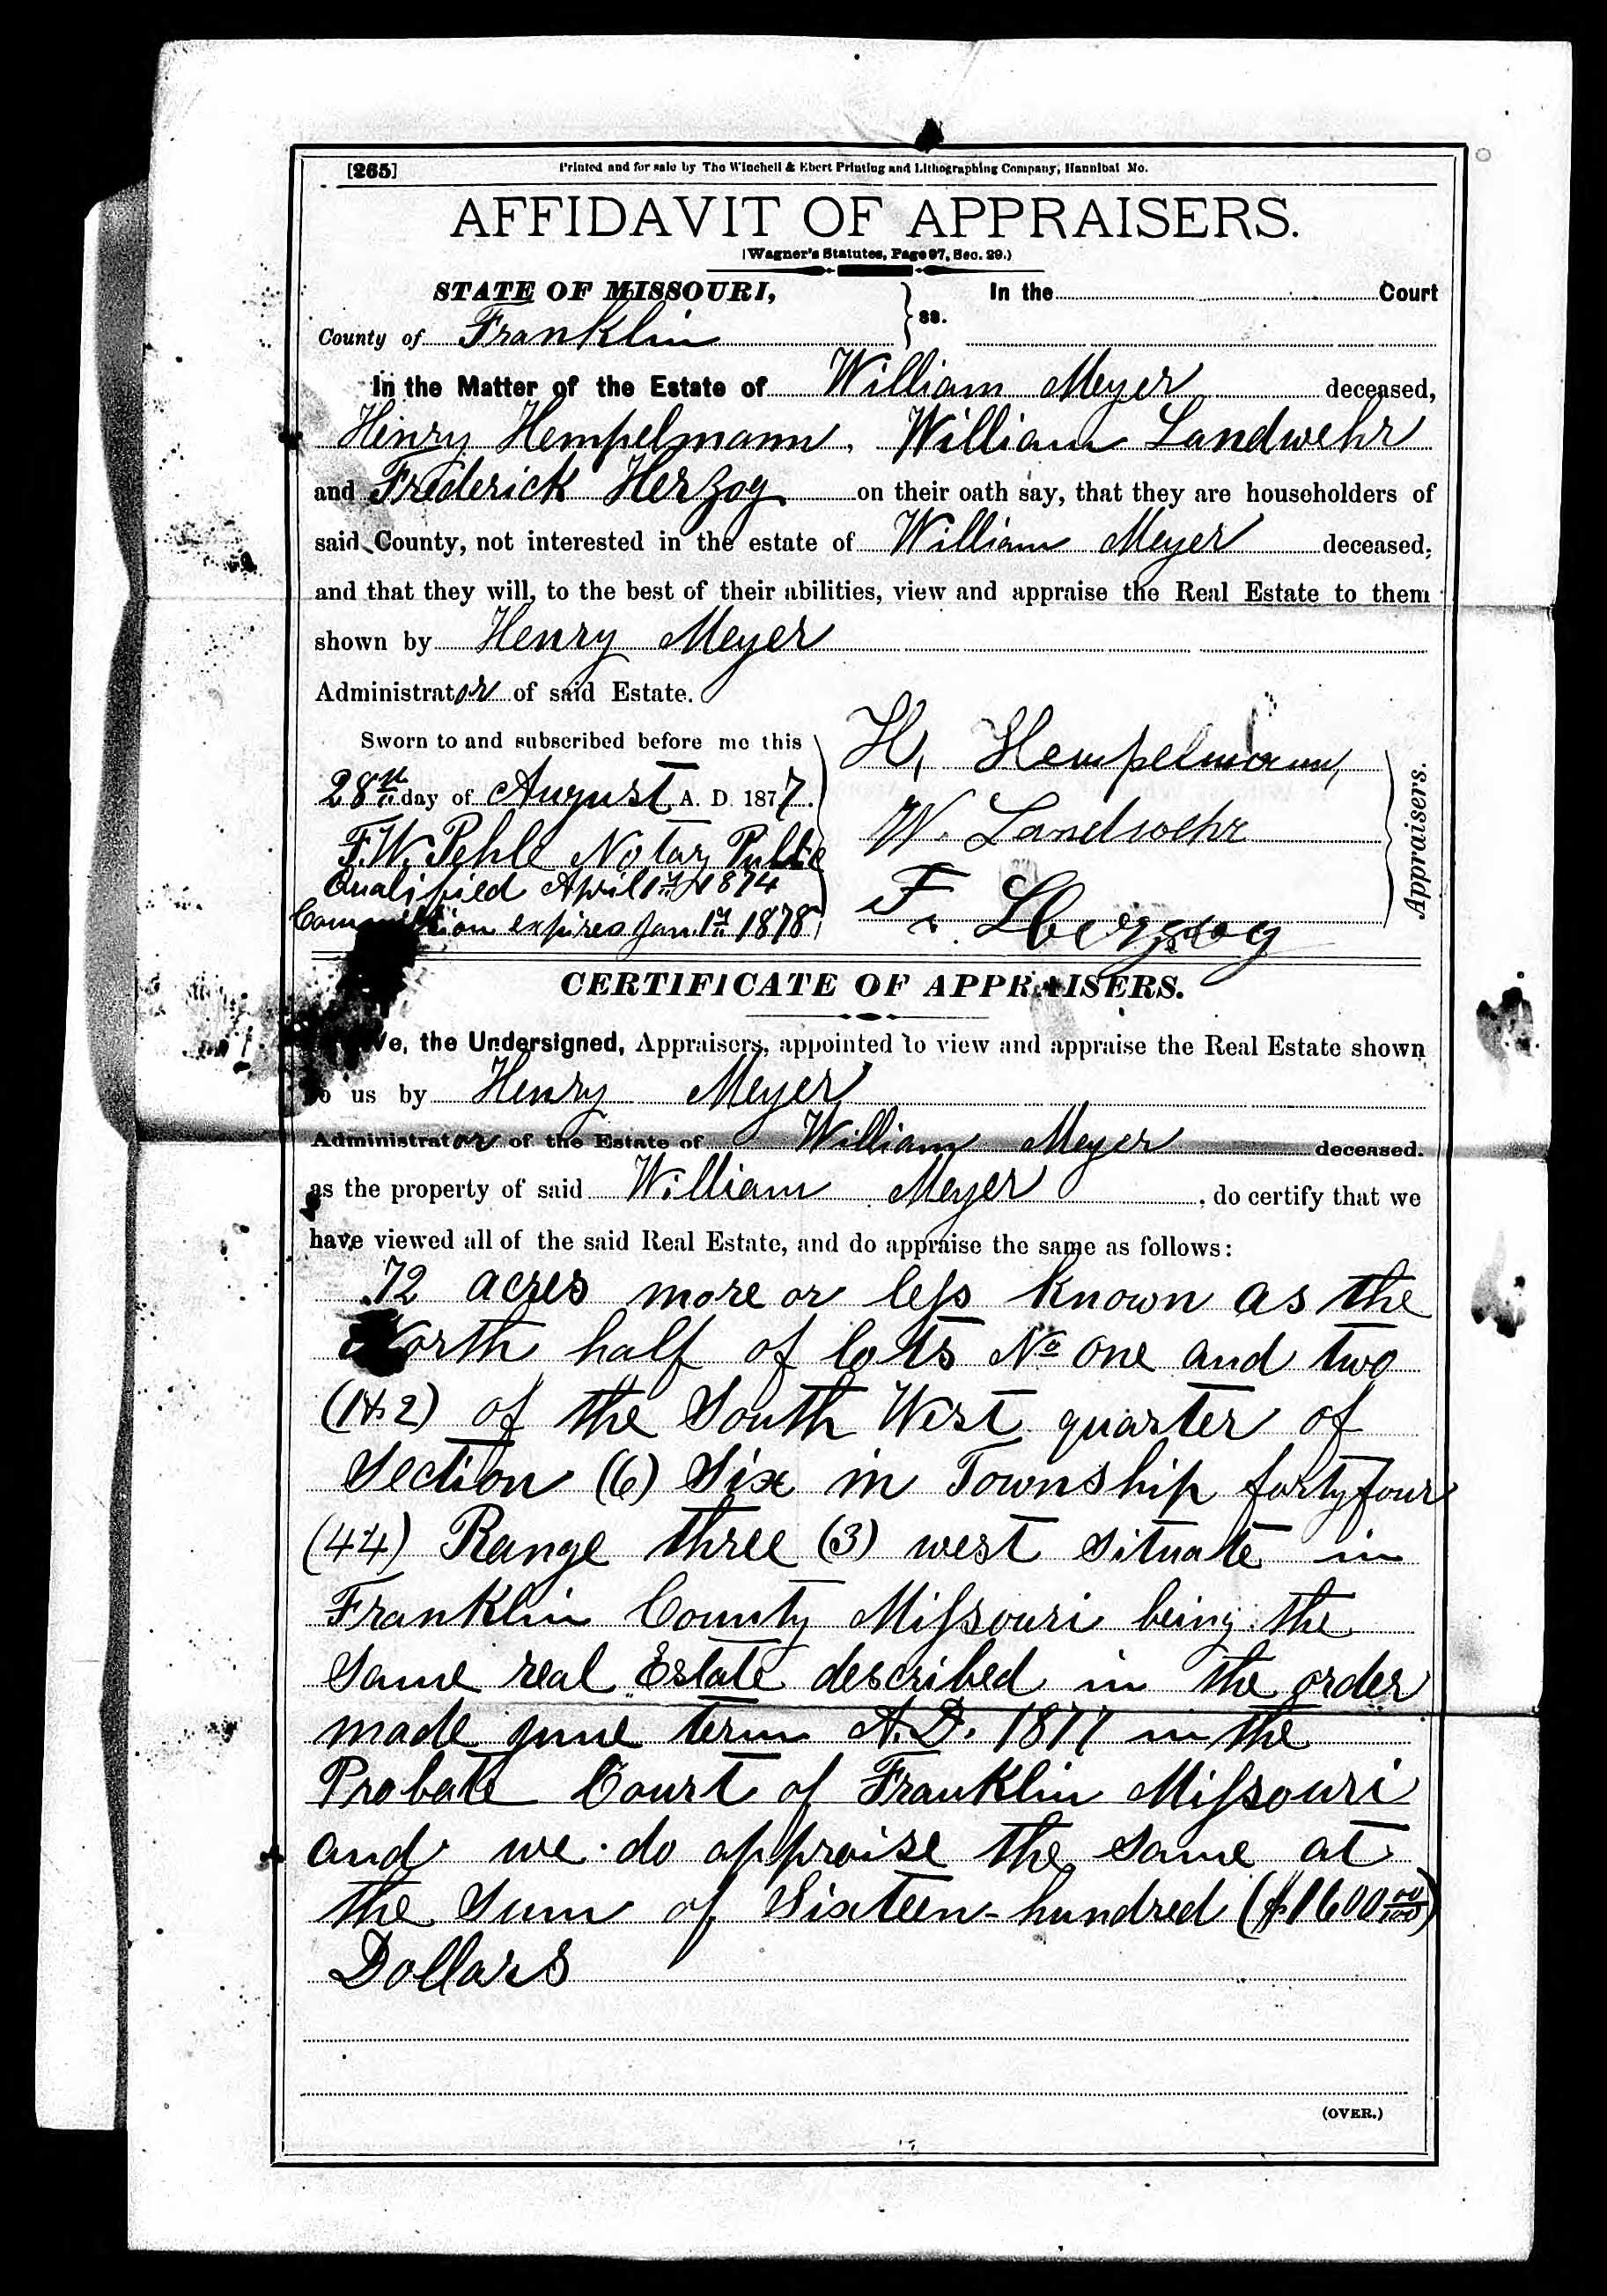 [265] Printed and for sale by The Winchell & Ebert Printing and Lithographing Company, Hannibal Mo.
AFFIDAVIT OF APPRAISERS.
(Wagner's Statutes, Page 97, Sec. 29.)
STATE OF MISSOURI, } ss. In the Court
County of Franklin
In the Matter of the Estate of William Meyer deceased,
Henry Hempelmann, William Landwehr
and Frederick Herzog on their oath say, that they are householders of
said County, not interested in the estate of William Meyer deceased,
and that they will, to the best of their abilities, view and appraise the Real Estate to them
shown by Henry Meyer
Administrator of said Estate.
Sworn to and subscribed before me this
28th day of August A. D. 1877.
F.W. Pehle Notary Public
Qualified April 1874
Commission expires Jan. 1st 1878
H. Hempelmann,
W. Landwehr
F. Herzog
Appraisers.
CERTIFICATE OF APPRAISERS.
We, the Undersigned, Appraisers, appointed to view and appraise the Real Estate shown
to us by Henry Meyer
Administrator of the Estate of William Meyer deceased.
as the property of said William Meyer, do certify that we
have viewed all of the said Real Estate, and do appraise the same as follows:
72 acres more or less known as the
North half of lots No one and two
(1 & 2) of the South West quarter of
Section (6) Six in Township forty four
(44) Range three (3) west situate in
Franklin County Missouri being the
same real Estate described in the order
made June term A.D. 1877 in the
Probate Court of Franklin Missouri
and we do appraise the same at
the Sum of Sixteen-hundred ($1600 00/100)
Dollars
(OVER.)